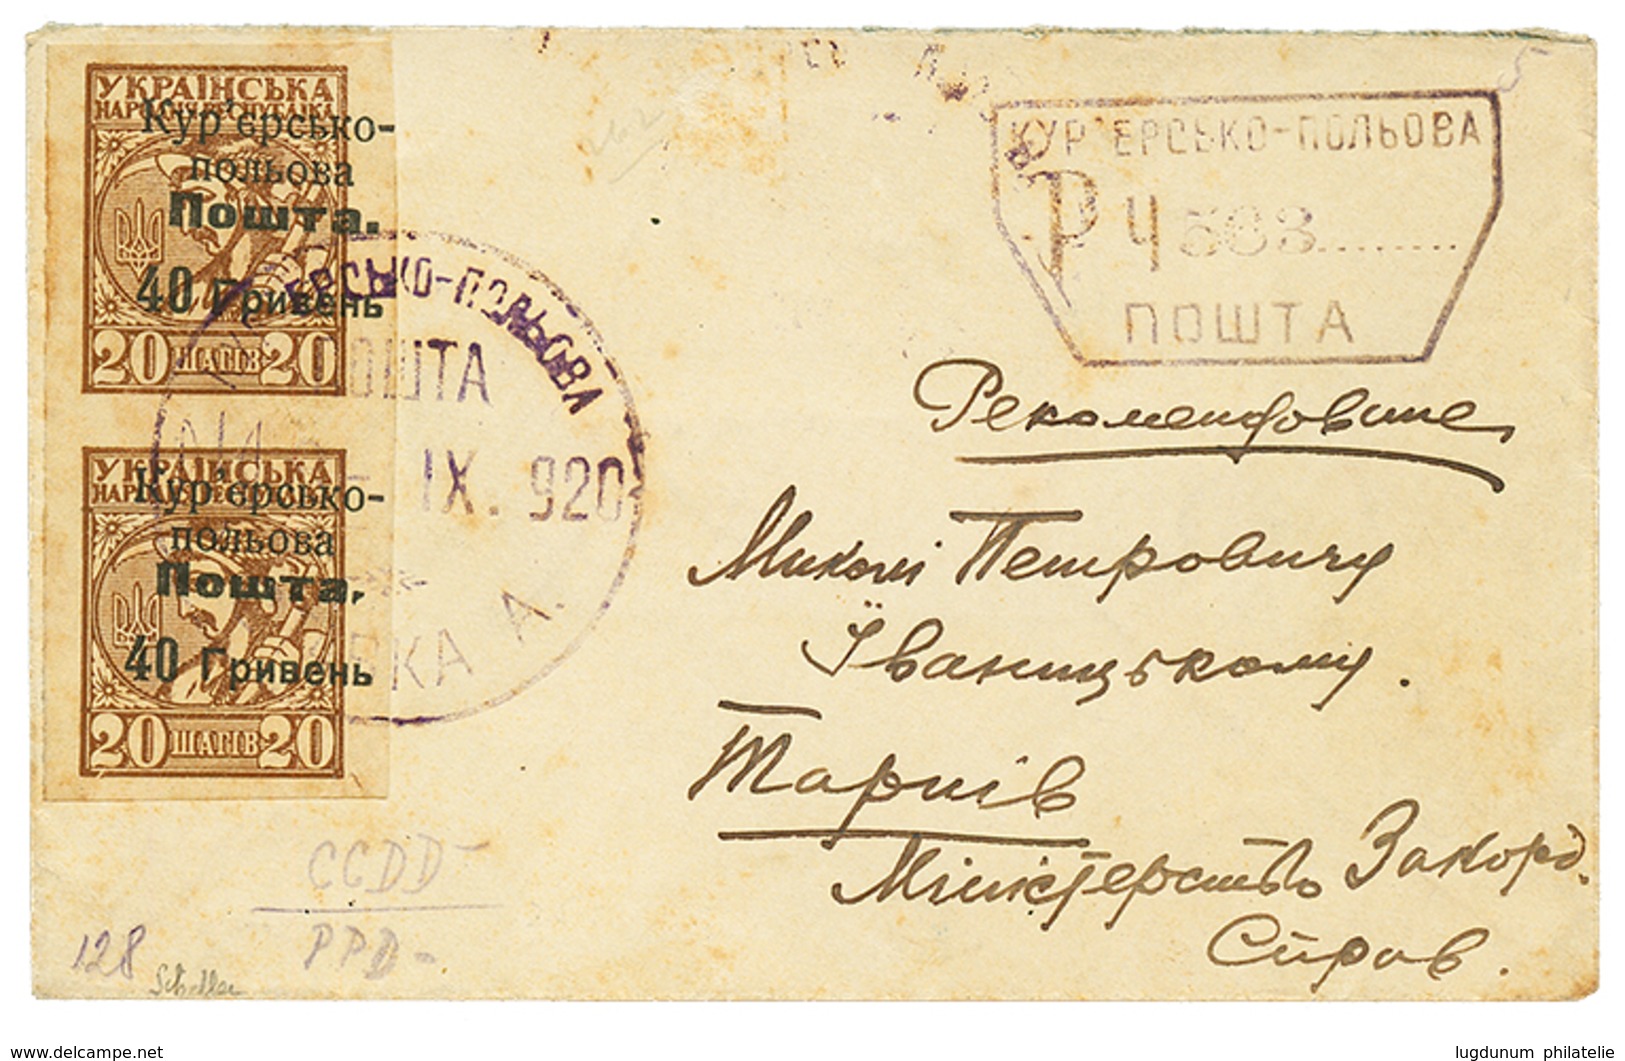 УКРАЇНСЬКА
НАРОДНЯ РЕСПУБЛІКА
Кур'єрсько-
польова
Пошта.
40 Гривень
20 ШАГІВ 20
УКРАЇНСЬКА
Кур'єрсько-
польова
Пошта.
40 Гривень
20 ШАГІВ 20
ЄРСЬКО-ПОЛЬОВА
ПОШТА
IX. 920
А.
КУР'ЄРСЬКО-ПОЛЬОВА
Р Ч 563
ПОШТА
Рекомендоване
Миколі Петровичу
Іваницькому.
Тарнів
Міністерство Закорд.
Справ.
CCDD-
PPD-
128
delcampe.net
lugdunum philatelie